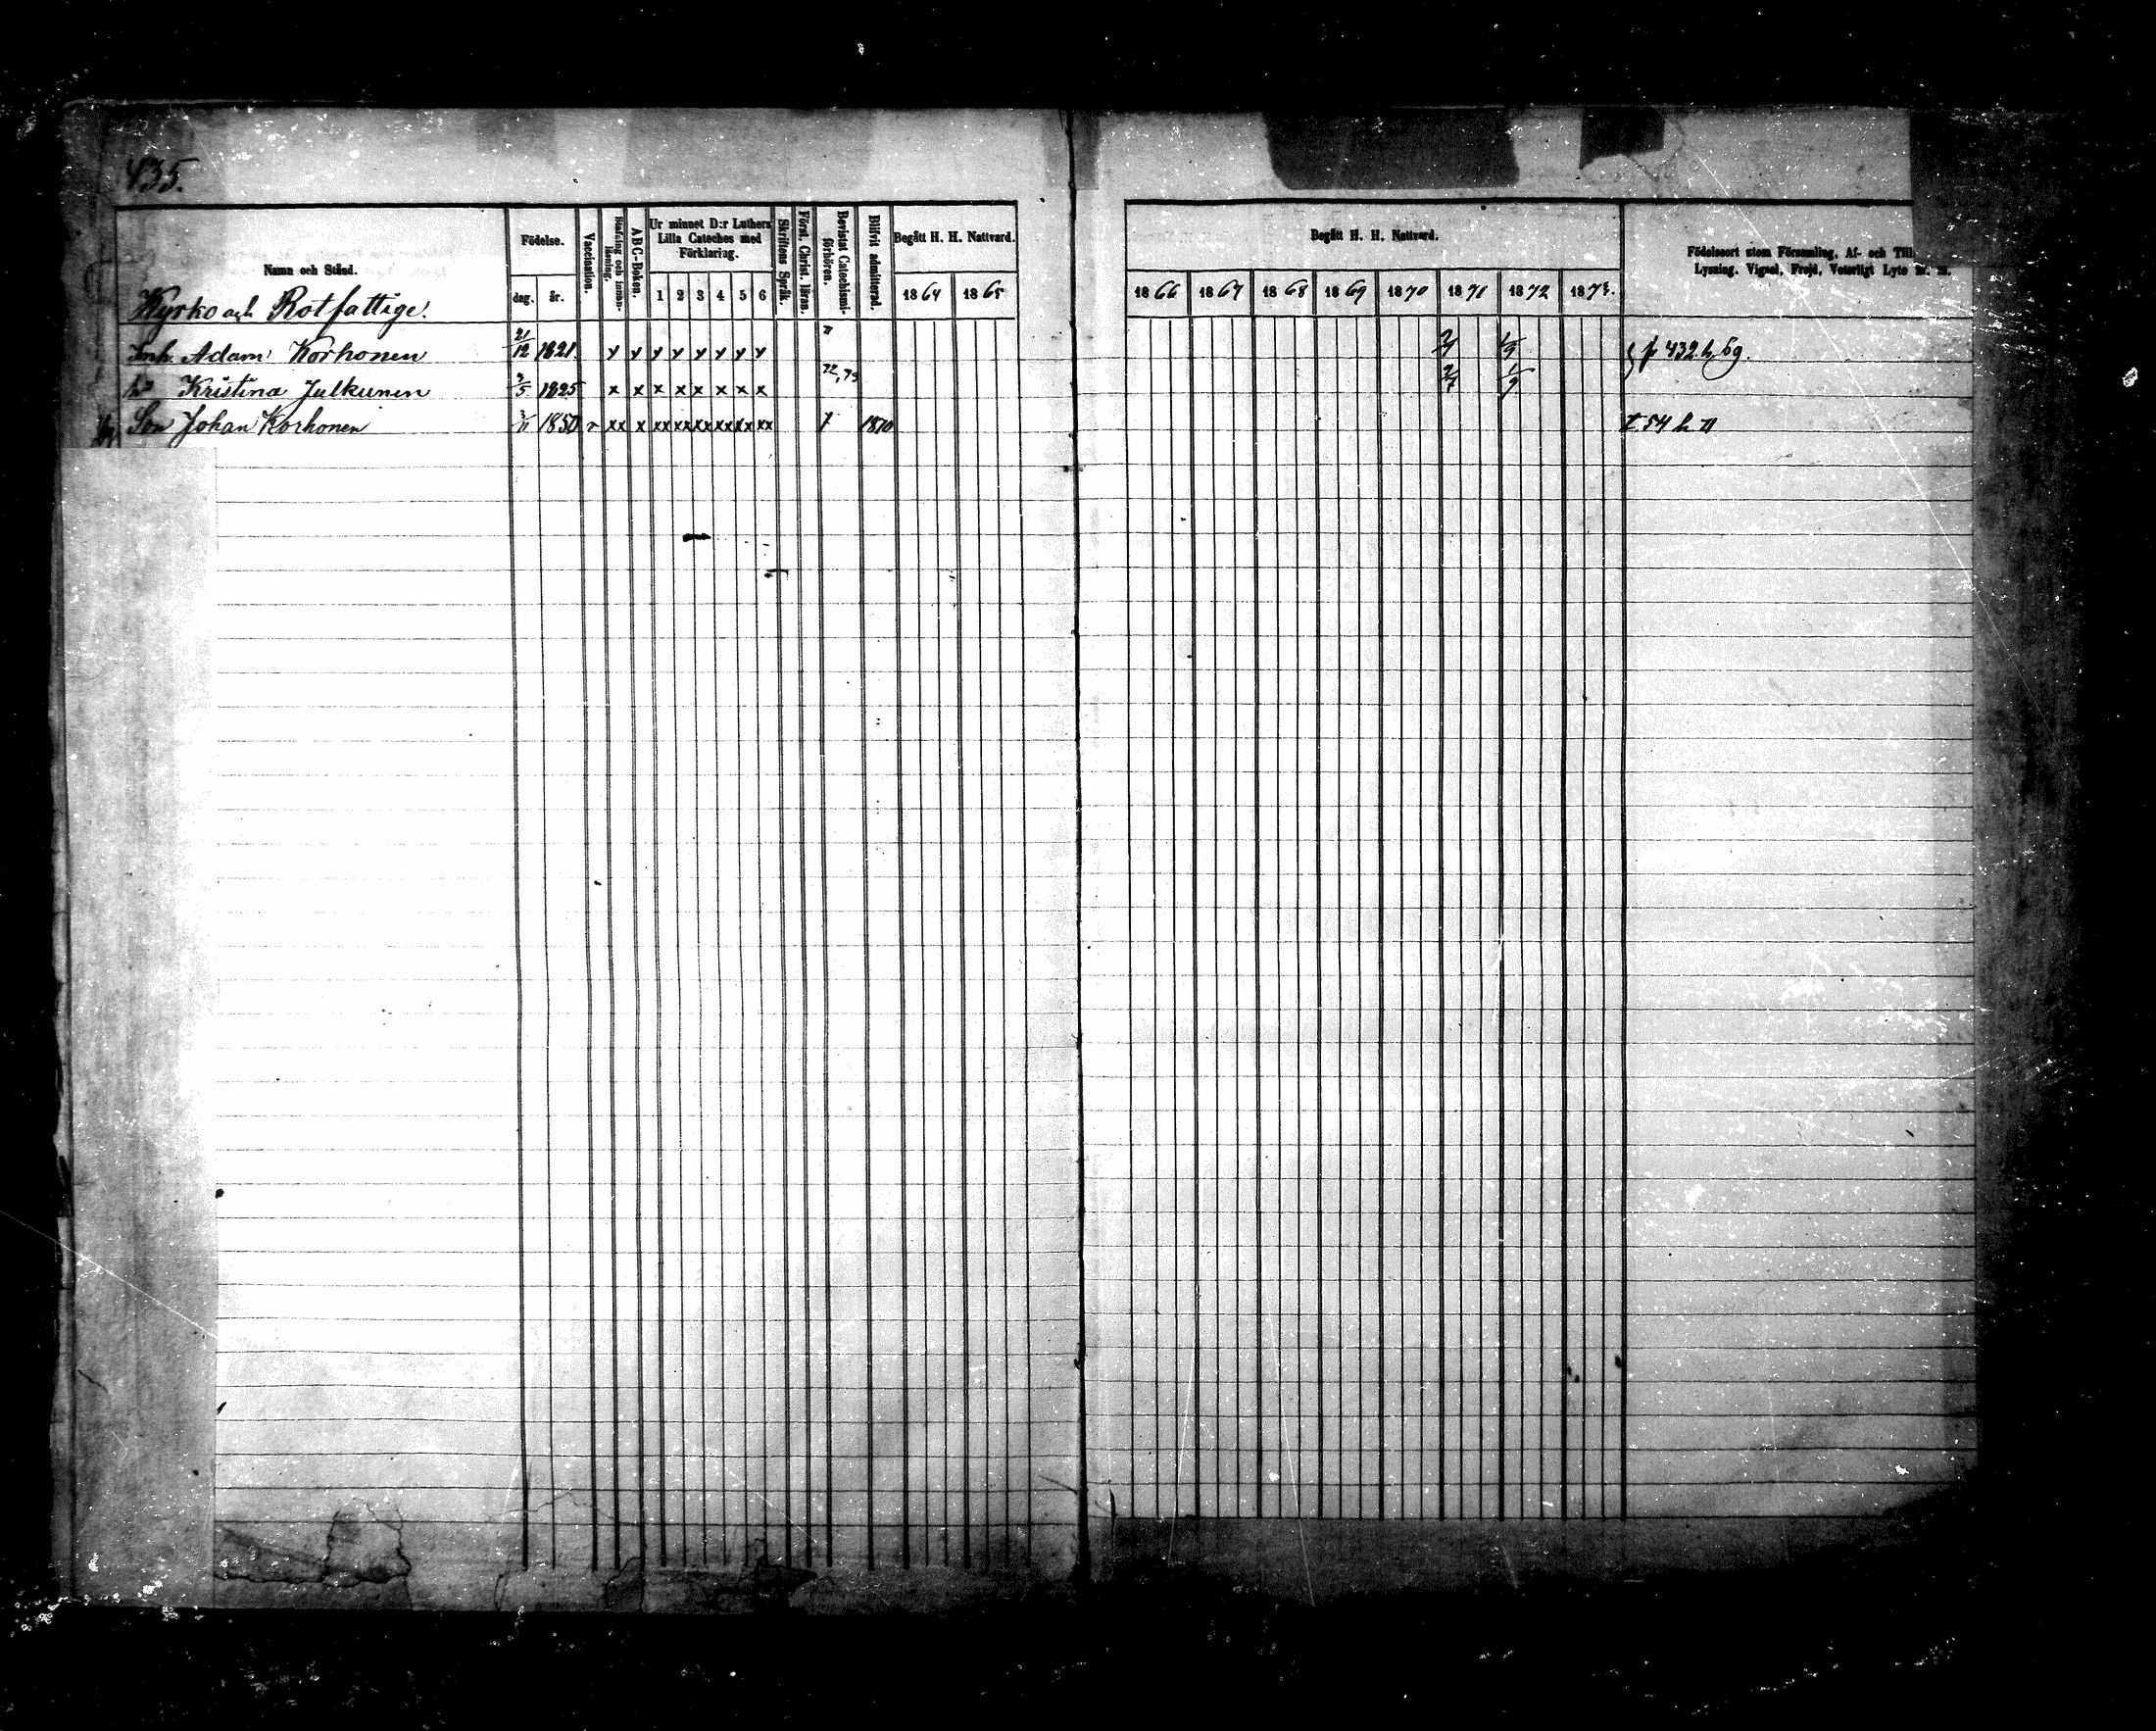 435.
Namn och Stånd.
Födelse.
dag.
år.
Vaccination.
Stafning och innan-läsning.
ABC-Boken.
Ur minnet D:r Luthers Lilla Cateches med Förklaring.
1 2 3 4 5 6
Skriftens Språk.
Först. Christ. läran.
Bevistat Catechismi-förhören.
Blifvit admitterad.
Begått H. H. Nattvard.
1864 1865
Begått H. H. Nattvard.
1866 1867 1868 1869 1870 1871 1872 1873.
Födelseort utom Församling, Af- och Till
Lysning, Vigsel, Frejd, Veterligt Lyte m. m.
Kyrko och Rotfattige.
Inh. Adam Korhonen 21/12 1821. y y y y y y y y 71 2/7 1/9 p 432 h 69.
h:u Kristina Julkunen 3/5 1825 x x x x x x x x 72, 73 2/7 1/9
Son Johan Korhonen 3/11 1850 v xx x xx xx xx xx xx xx x 1870 t 54 h 71